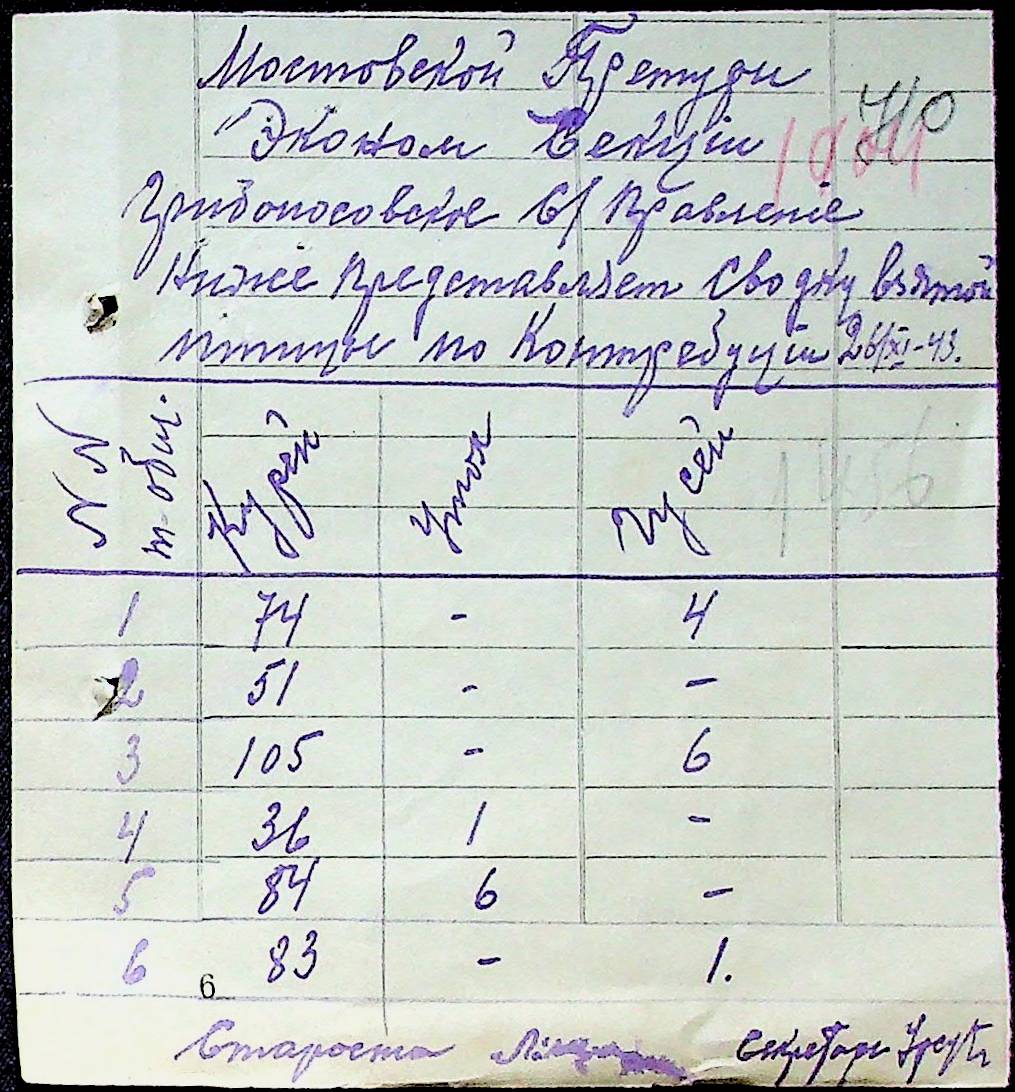 Мостовской Претуры
Эконом Секции
710
Грибоносовское С/ Правление
Ниже представляет сводку взятой
птицы по Контребуции 26/XI-43.
NN т-общ. Курей Уток Гусей
1456
1 74 - 4
2 51 - -
3 105 - 6
4 36 1 -
5 84 6 -
6 83 - 1.
6
Староста Секретарь